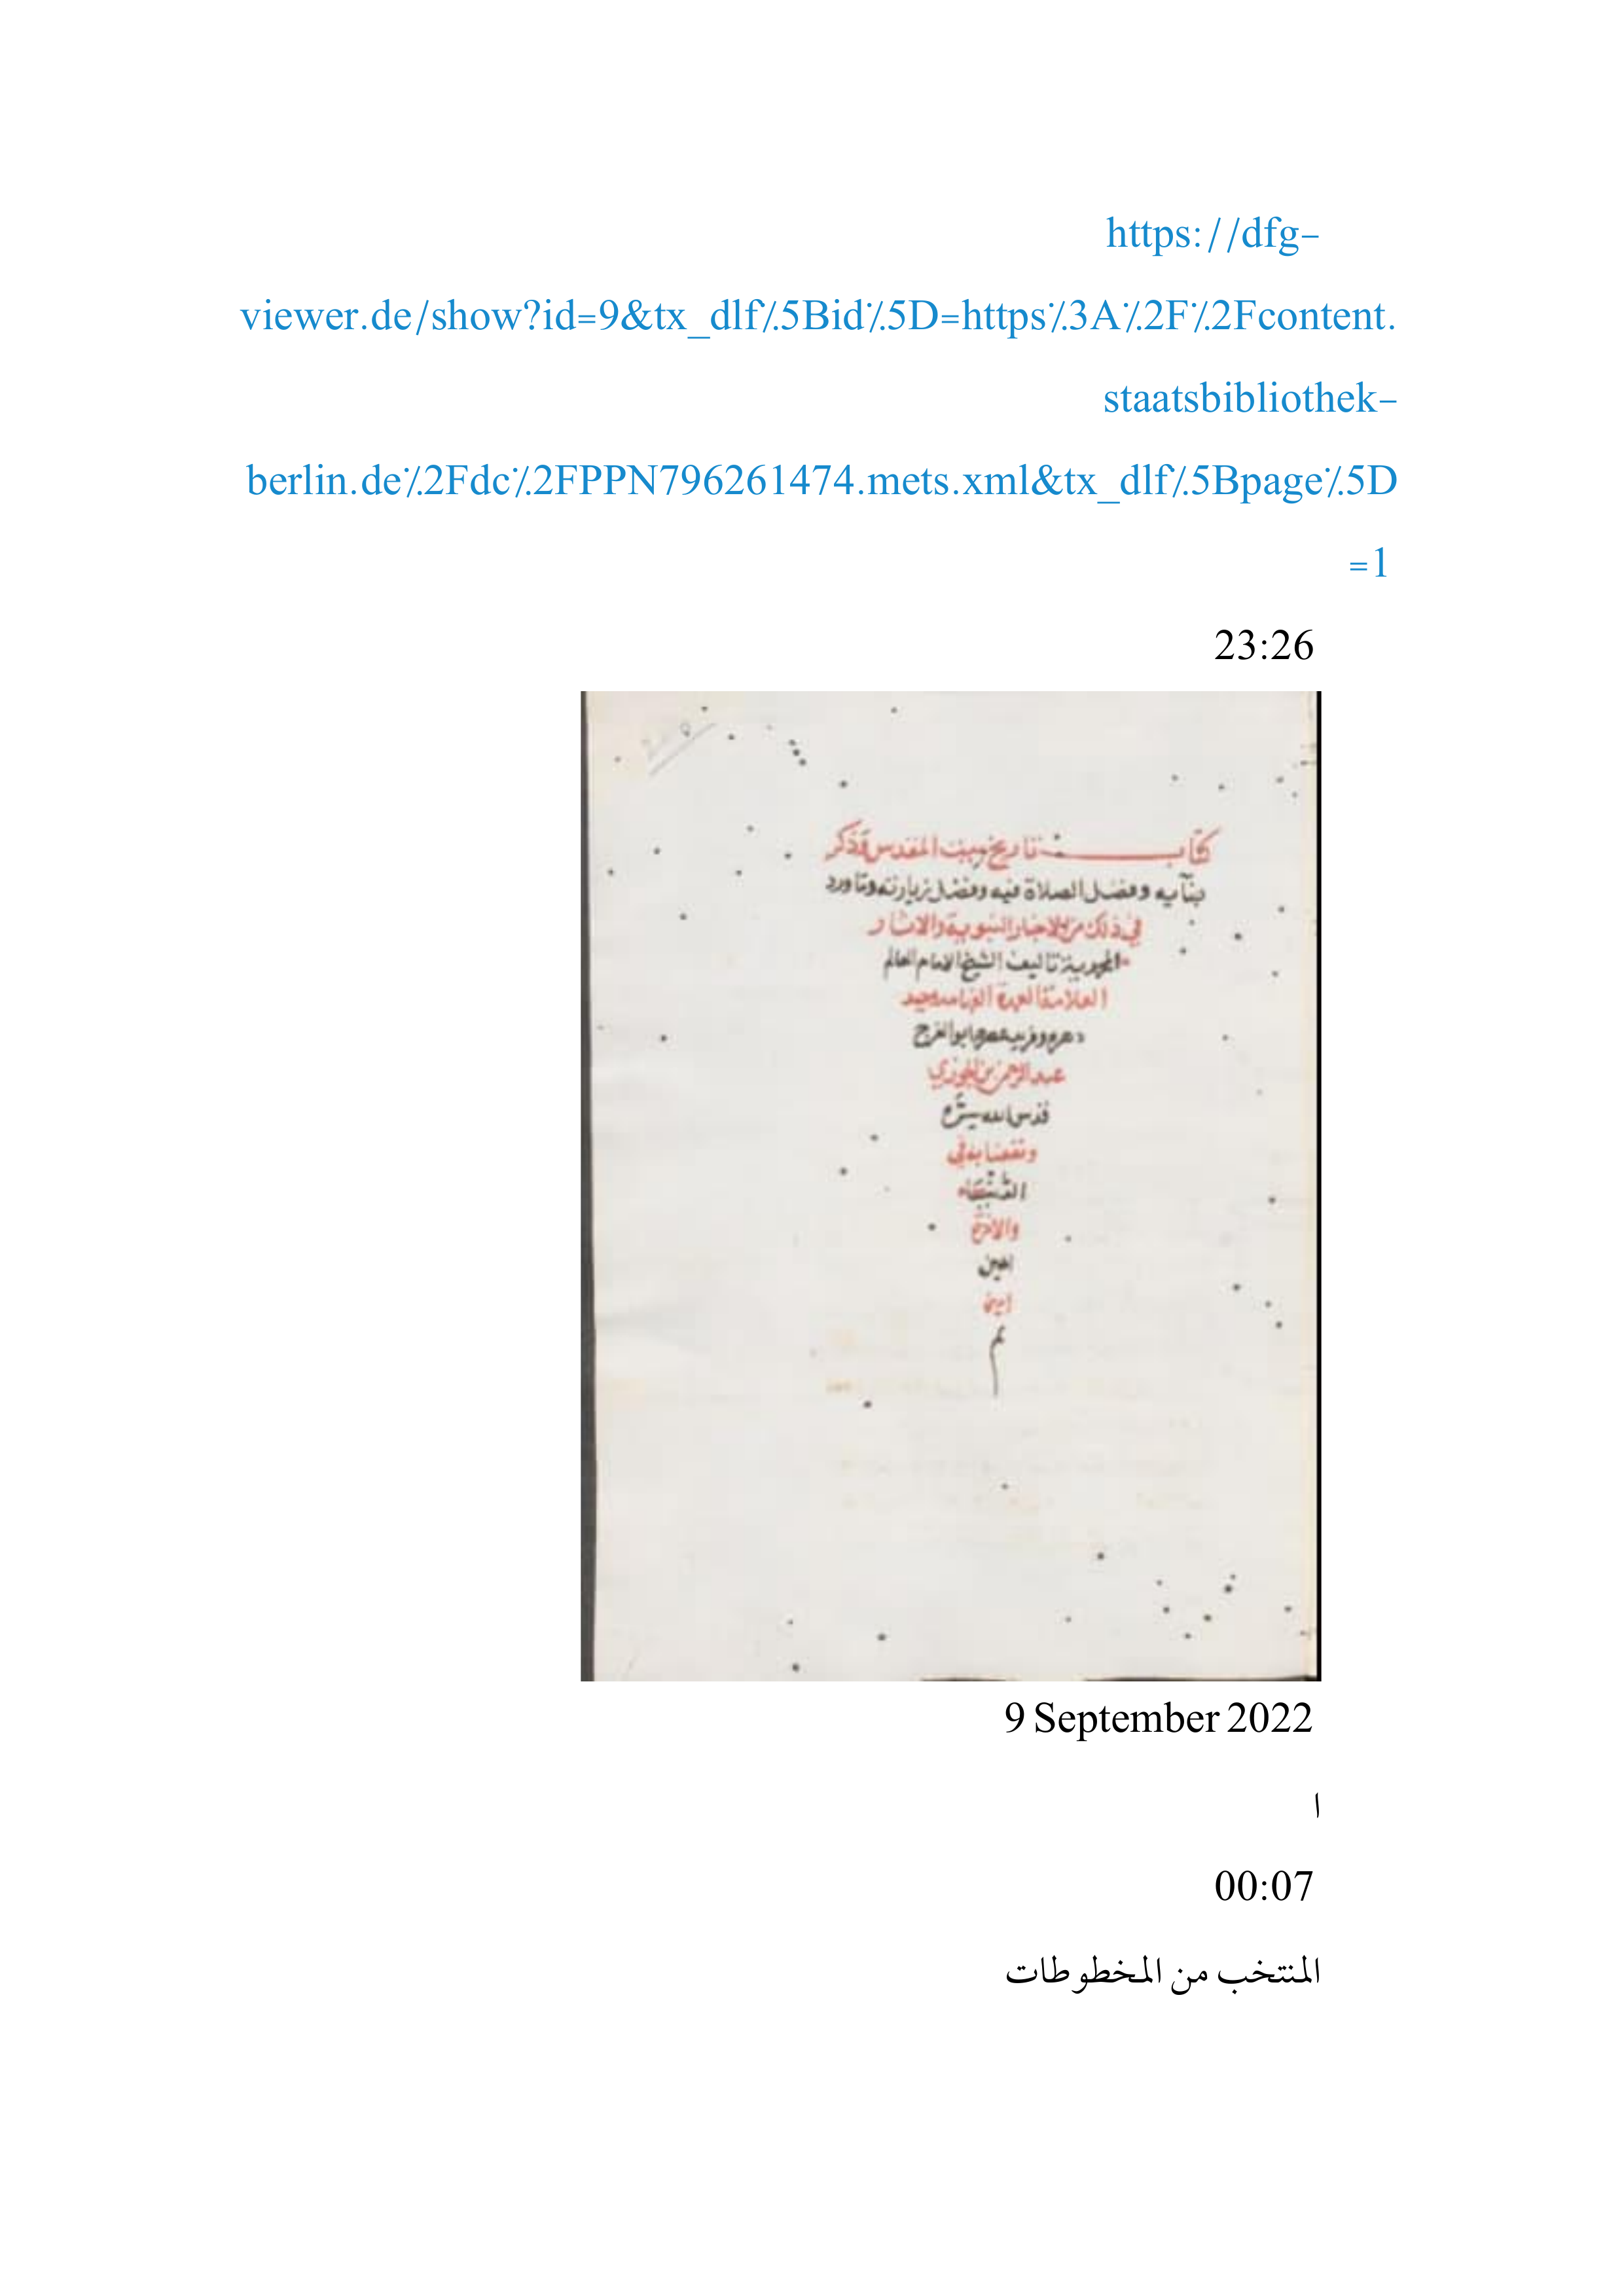 https://dfg-
viewer.de/show?id=9&tx_dlf٪5Bid٪5D=https٪3A٪2F٪2Fcontent.
staatsbibliothek-
berlin.de٪2Fdc٪2FPPN796261474.mets.xml&tx_dlf٪5Bpage٪5D
=1
23:26
كتاب تاريخ بيت المقدس وذكر
بنآيه وفضل الصلاة فيه وفضل زيارته وما ورد
في ذلك من الاخبار النبوية والاثار
تاليف الشيخ الامام العالم
العلامة العمدة الفهامه وحيد
دهره وفريد عصره ابو الفرج
عبد الرحمن بن الجوزي
قدس الله سره
ونفعنا به في
والاخرة
امين
امين
م
9 September 2022
ا
00:07
المنتخب من المخطوطات